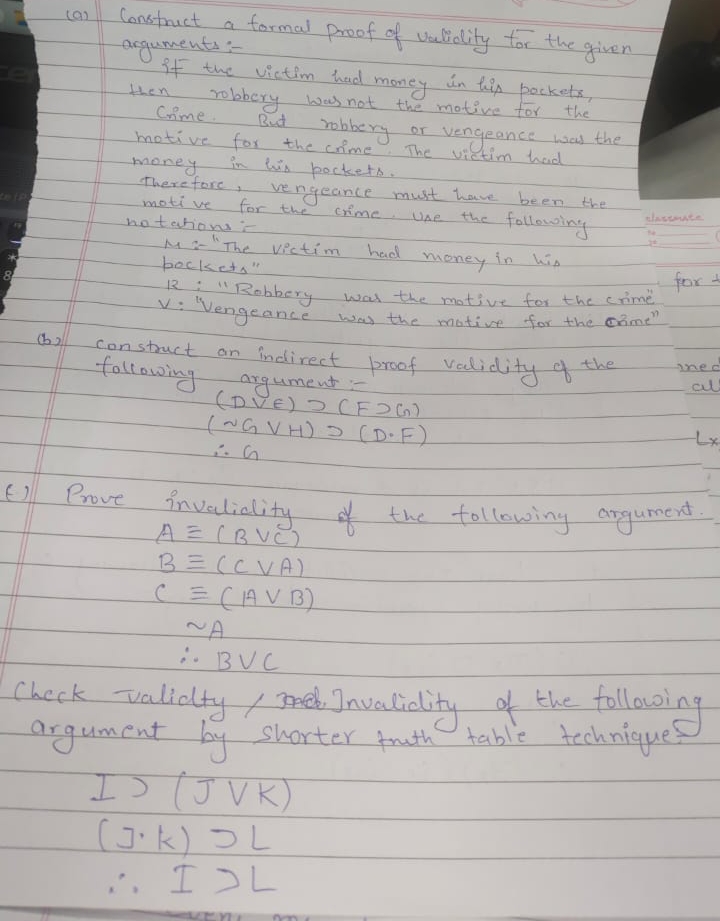 (a) Construct a formal proof of validity for the given
arguments :-
If the victim had money in his pockets,
then robbery was not the motive for the
crime. But robbery or vengeance was the
motive for the crime. The victim had
money in his pockets.
Therefore, vengeance must have been the
motive for the crime. Use the following
notations :-
M :- "The victim had money in his
pockets"
R : "Robbery was the motive for the crime"
V : "Vengeance was the motive for the crime"
(b) Construct an indirect proof validity of the
following argument :-
(D V E) ⊃ (F ⊃ G)
(~G V H) ⊃ (D · F)
∴ G
Prove invalidity of the following argument.
A ≡ (B V C)
B ≡ (C V A)
C ≡ (A V B)
~A
∴ B V C
Check validity / Invalidity of the following
argument by shorter truth table technique
I ⊃ (J V K)
(J · K) ⊃ L
∴ I ⊃ L
classmate
for